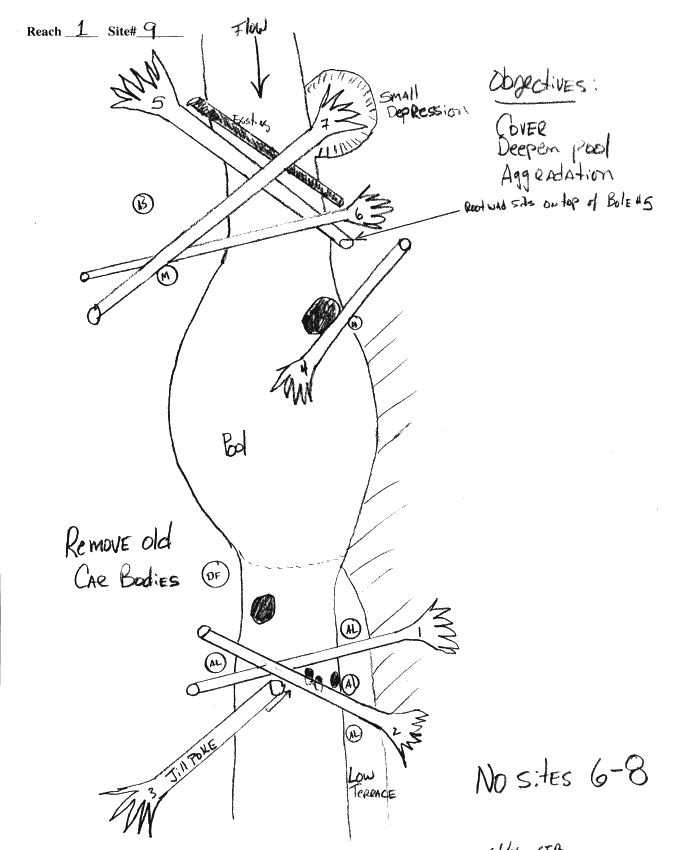 Reach 1 Site# 9
Flow
Objectives:
Small
Depression
Cover
Deepen pool
Aggradation
5
7
Existing
6
Rootwad sits on top of Bole #5
B
M
4
Pool
Remove old
Car Bodies
DF
AL
1
AL
Al
2
AL
Jill Poke
3
Low
Terrace
No sites 6-8